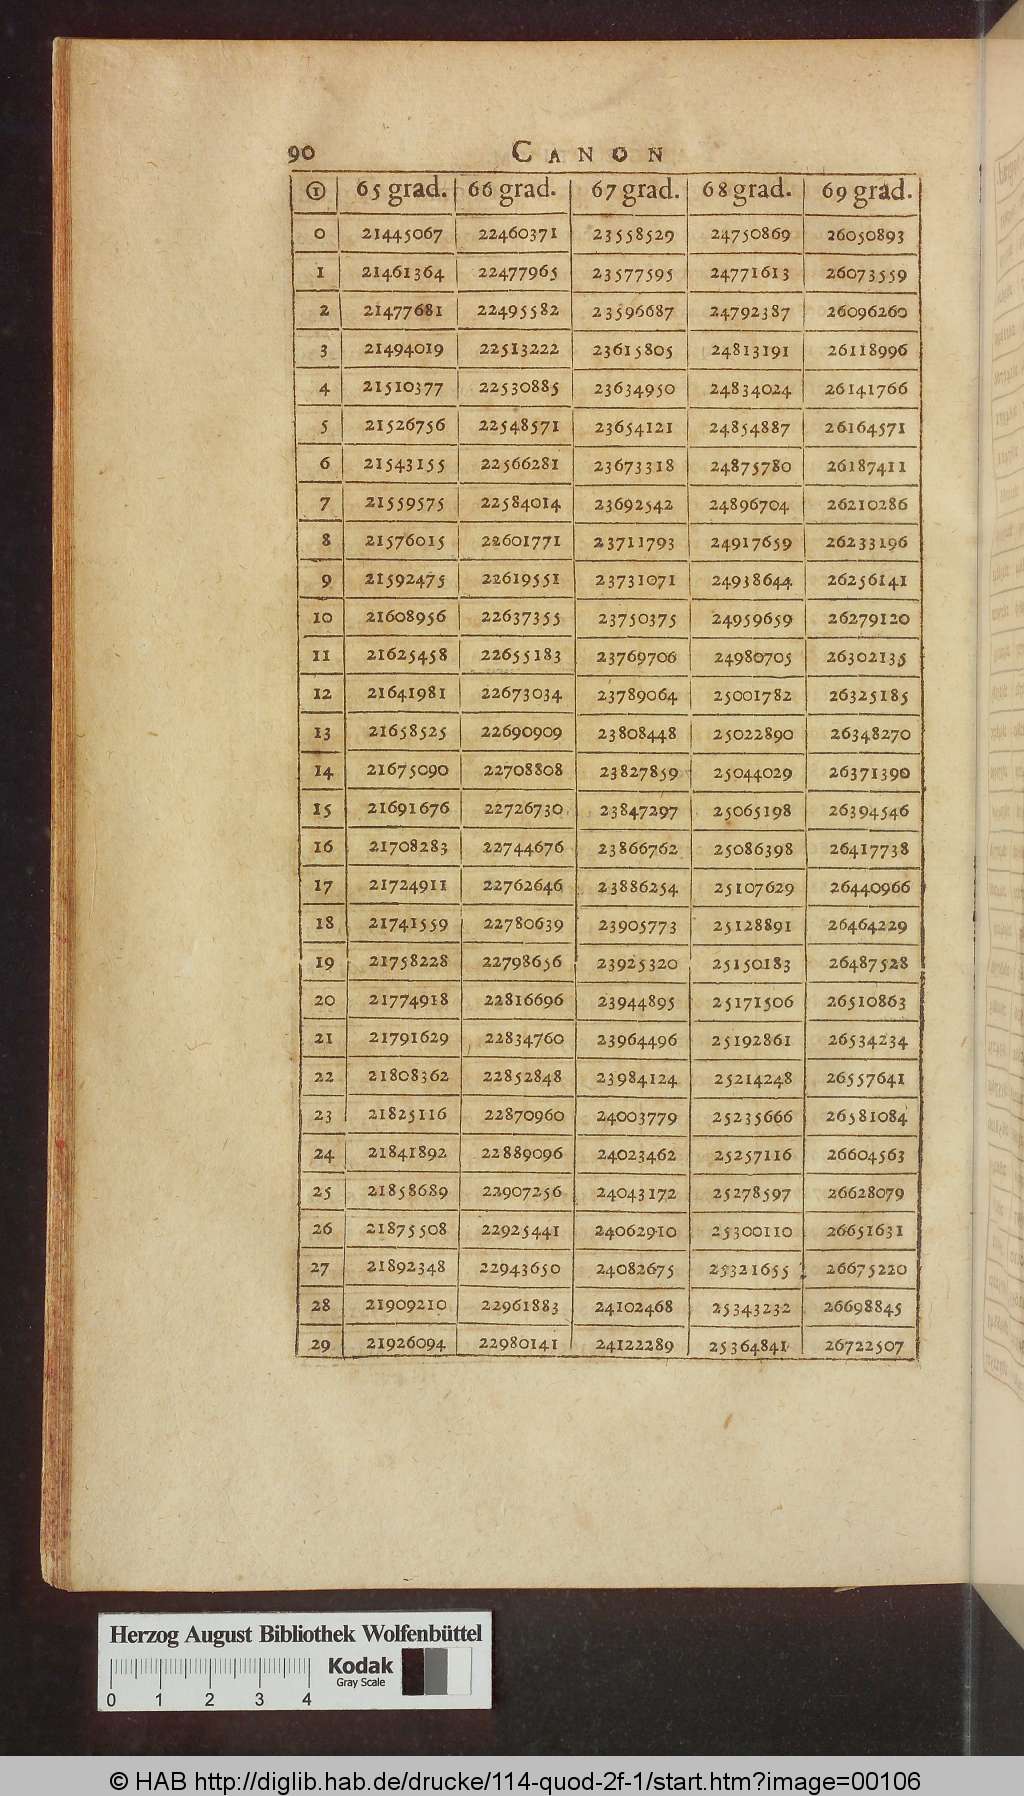 90 CANON
① 65 grad. 66 grad. 67 grad. 68 grad. 69 grad.
0 21445067 22460371 23558529 24750869 26050893
1 21461364 22477965 23577595 24771613 26073559
2 21477681 22495582 23596687 24792387 26096260
3 21494019 22513222 23615805 24813191 26118996
4 21510377 22530885 23634950 24834024 26141766
5 21526756 22548571 23654121 24854887 26164571
6 21543155 22566281 23673318 24875780 26187411
7 21559575 22584014 23692542 24896704 26210286
8 21576015 22601771 23711793 24917659 26233196
9 21592475 22619551 23731071 24938644 26256141
10 21608956 22637355 23750375 24959659 26279120
11 21625458 22655183 23769706 24980705 26302135
12 21641981 22673034 23789064 25001782 26325185
13 21658525 22690909 23808448 25022890 26348270
14 21675090 22708808 23827859 25044029 26371390
15 21691676 22726730 23847297 25065198 26394546
16 21708283 22744676 23866762 25086398 26417738
17 21724911 22762646 23886254 25107629 26440966
18 21741559 22780639 23905773 25128891 26464229
19 21758228 22798656 23925320 25150183 26487528
20 21774918 22816696 23944895 25171506 26510863
21 21791629 22834760 23964496 25192861 26534234
22 21808362 22852848 23984124 25214248 26557641
23 21825116 22870960 24003779 25235666 26581084
24 21841892 22889096 24023462 25257116 26604563
25 21858689 22907256 24043172 25278597 26628079
26 21875508 22925441 24062910 25300110 26651631
27 21892348 22943650 24082675 25321655 26675220
28 21909210 22961883 24102468 25343232 26698845
29 21926094 22980141 24122289 25364841 26722507
Herzog August Bibliothek Wolfenbüttel
Kodak
Gray Scale
0 1 2 3 4
© HAB http://diglib.hab.de/drucke/114-quod-2f-1/start.htm?image=00106